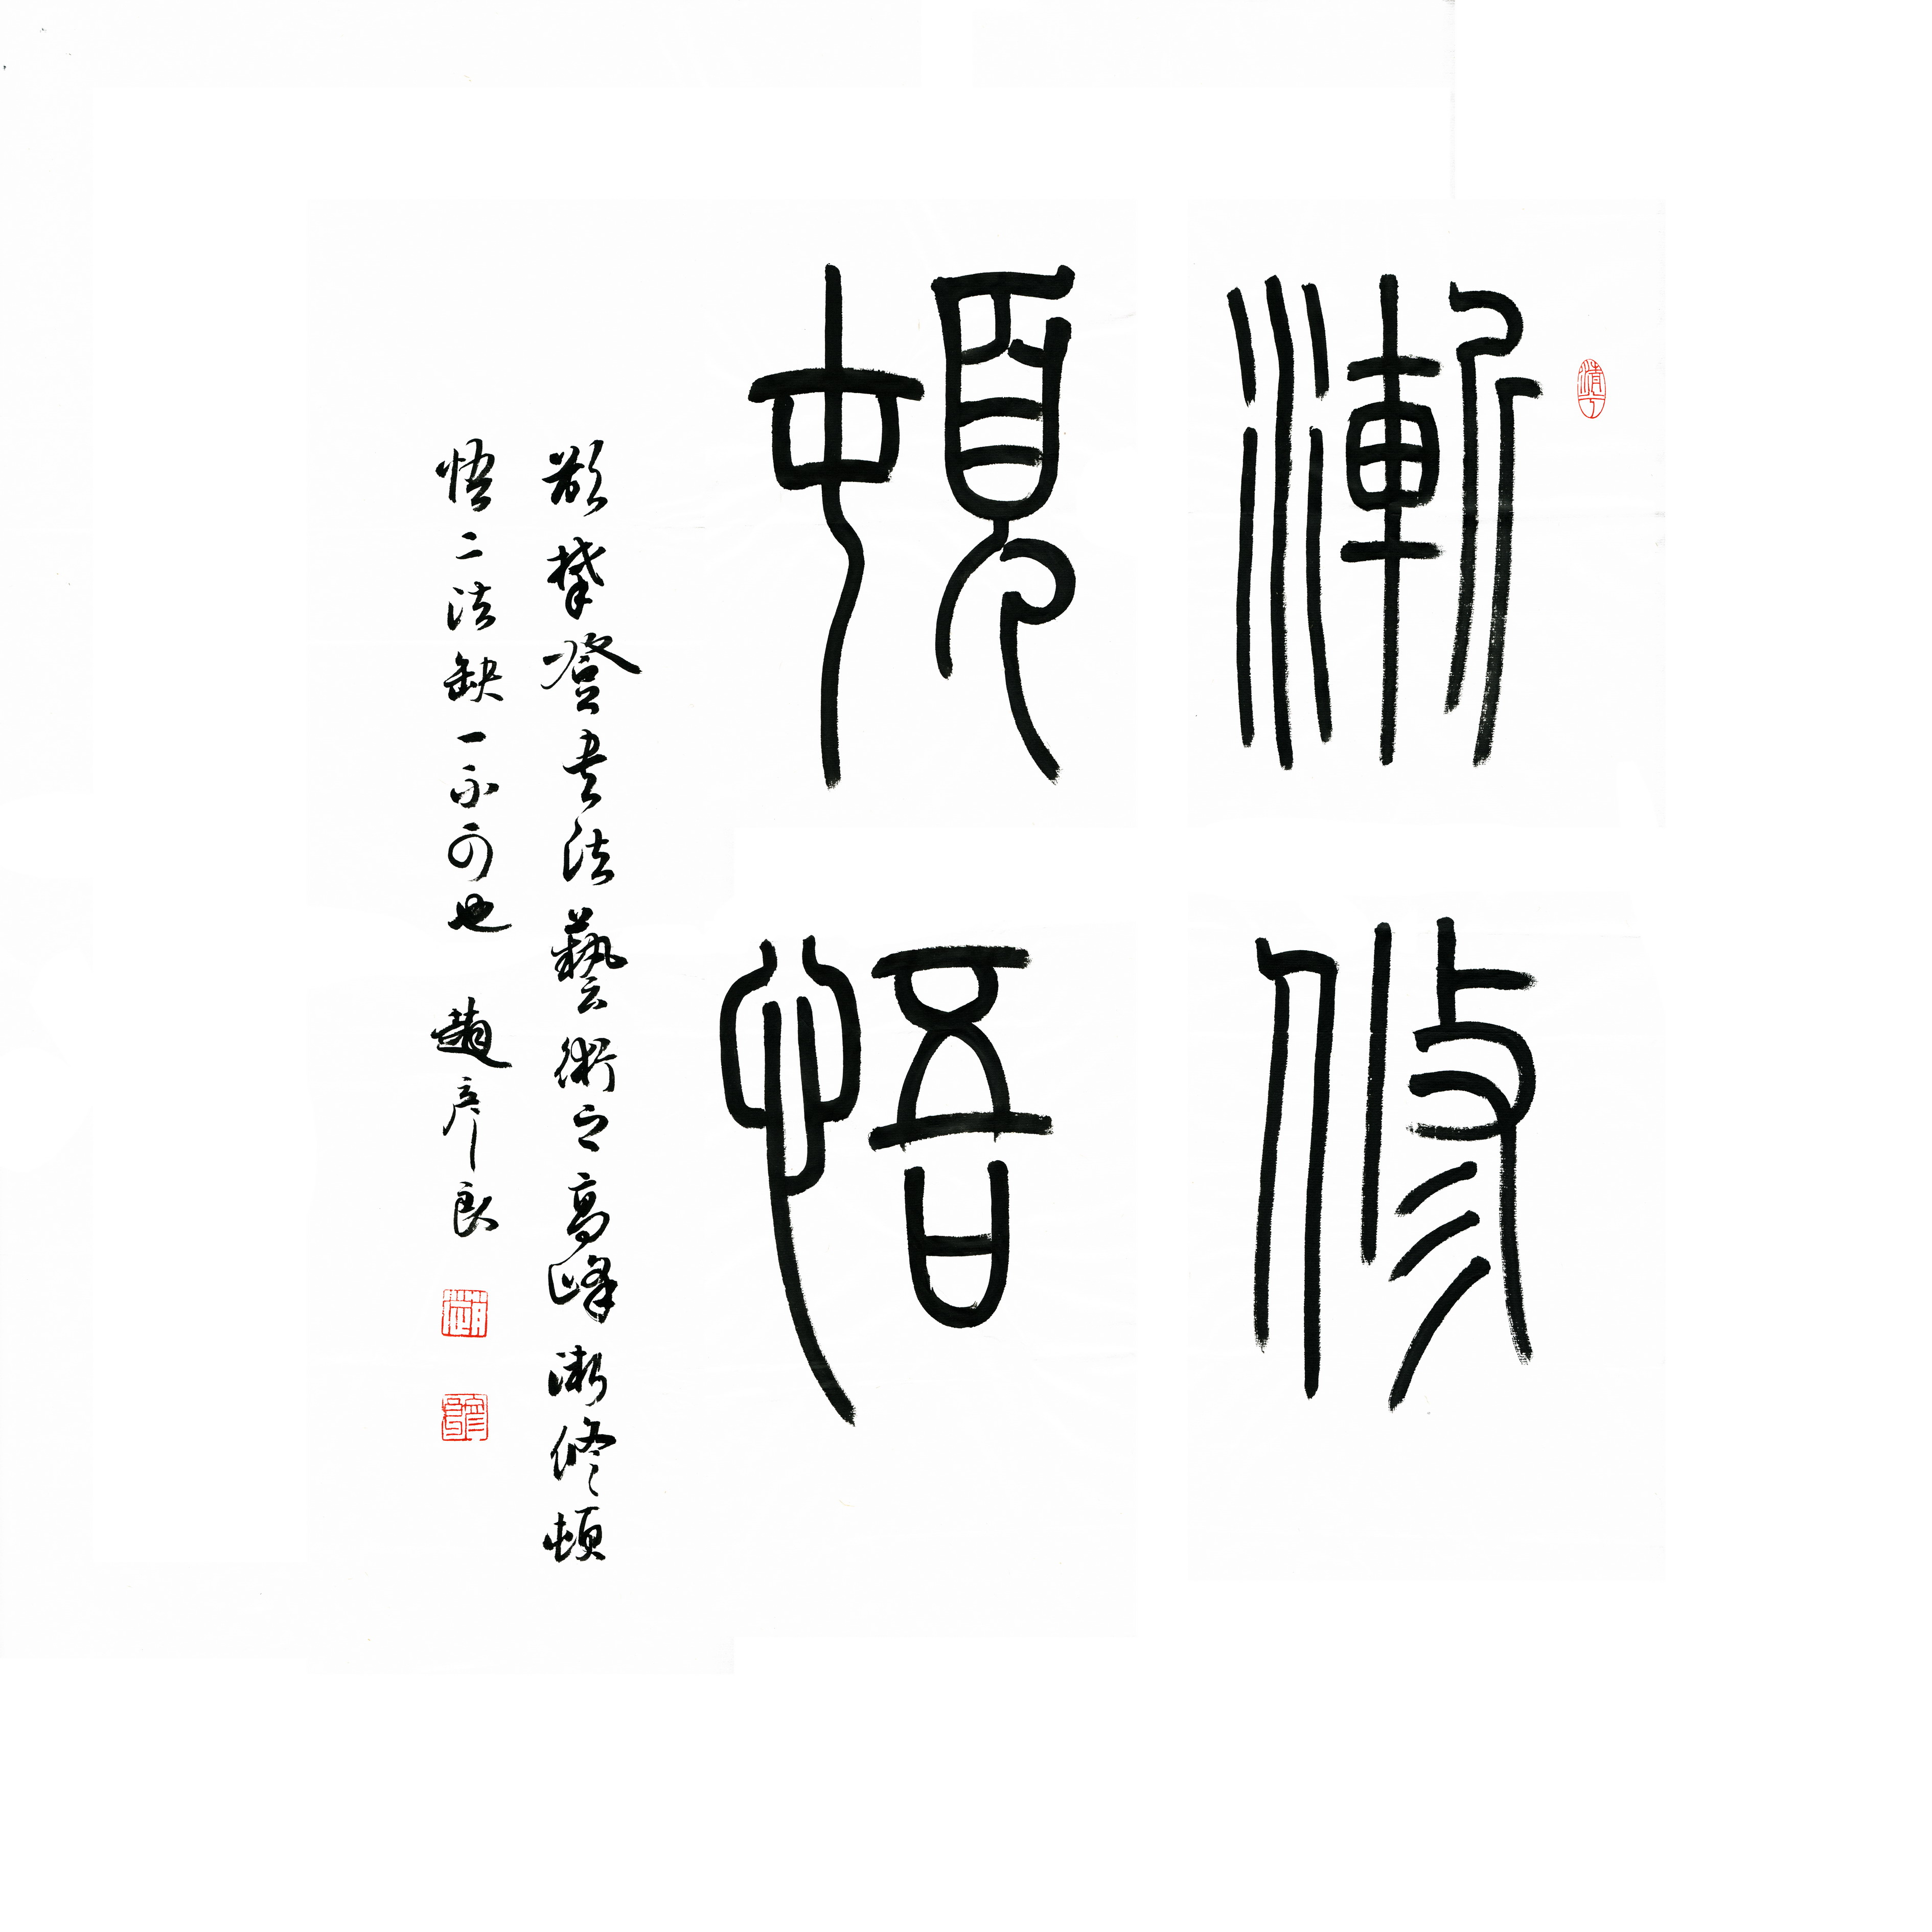 漸修
頓悟
欲攀登書法藝術之高峰漸修頓
悟二法缺一不可也 趙彦良
趙
彦良